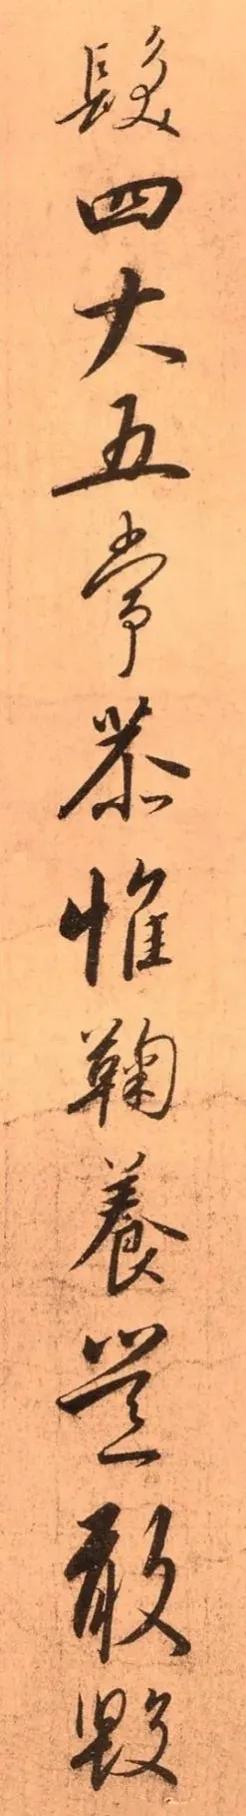 髮四大五常恭惟鞠養豈敢毀